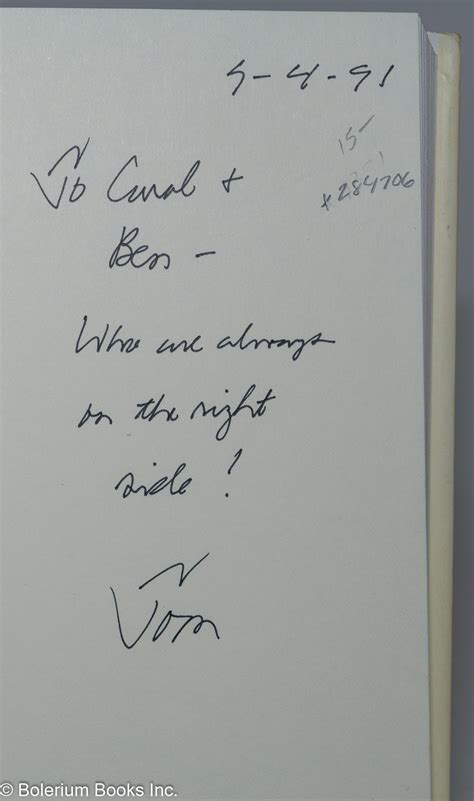 5-4-91
15-
x284706
To Carol +
Ben -
Who are always
on the right
side!
Tom
© Bolerium Books Inc.